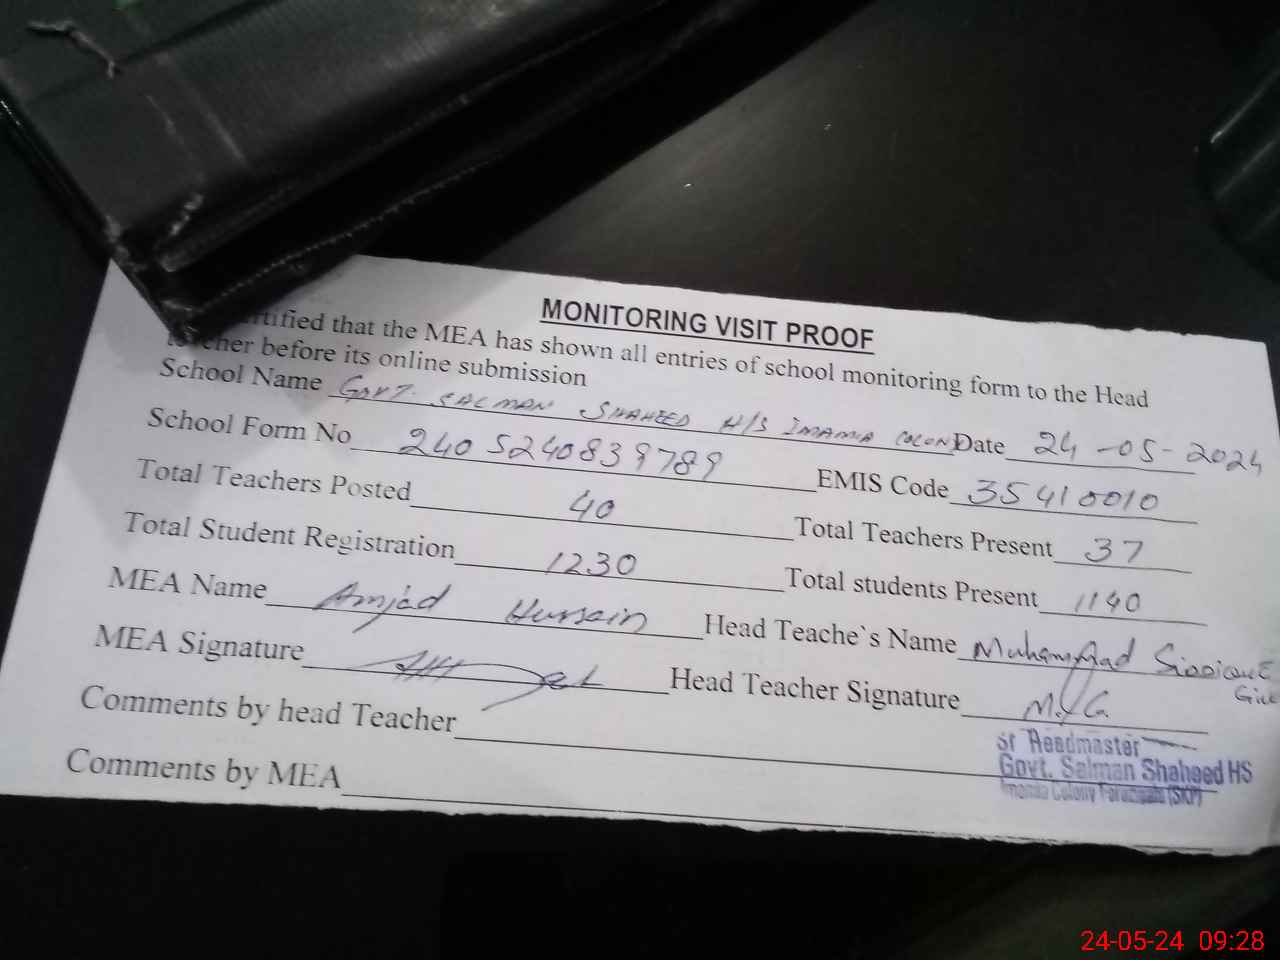 MONITORING VISIT PROOF
rtified that the MEA has shown all entries of school monitoring form to the Head
teacher before its online submission
School Name GOVT. SALMAN SHAHEED H/S IMAMIA COLONY Date 24-05-2024
School Form No 2405240839789 EMIS Code 35410010
Total Teachers Posted 40 Total Teachers Present 37
Total Student Registration 1230 Total students Present 1140
MEA Name Amjad Hussain Head Teache`s Name Muhammad Siddique Gill
MEA Signature Head Teacher Signature M.S.G.
Comments by head Teacher
Comments by MEA
Sr Headmaster
Govt. Salman Shaheed HS
Imamia Colony Ferozwala (SKP)
24-05-24 09:28